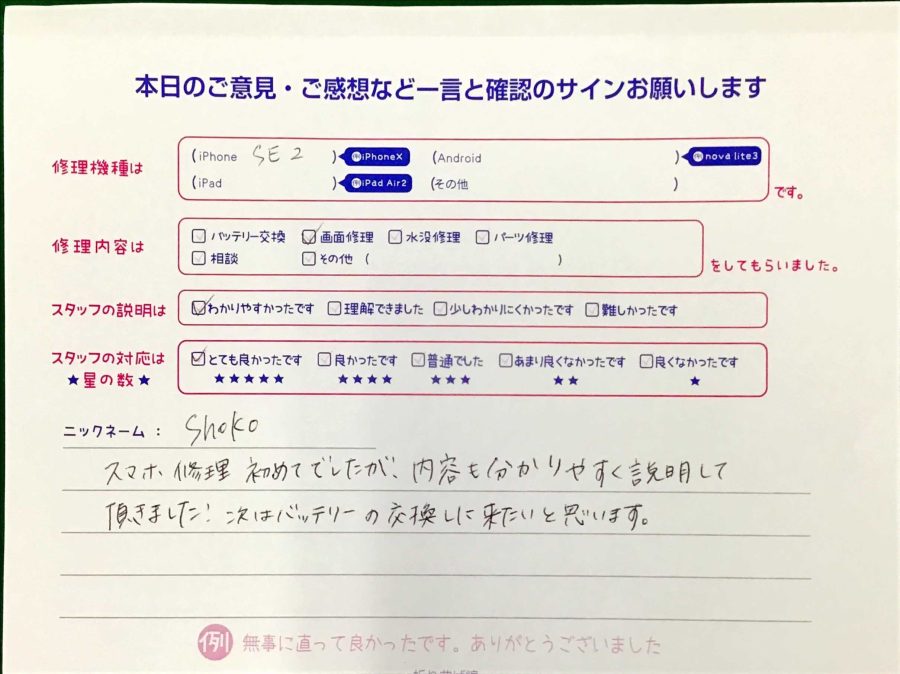 本日のご意見・ご感想など一言と確認のサインお願いします
修理機種は (iPhone SE2 ) 例iPhoneX (Android ) 例nova lite3
(iPad ) 例iPad Air2 (その他 ) です。
修理内容は バッテリー交換 画面修理 水没修理 パーツ修理
相談 その他 ( ) をしてもらいました。
スタッフの説明は わかりやすかったです 理解できました 少しわかりにくかったです 難しかったです
スタッフの対応は とても良かったです 良かったです 普通でした あまり良くなかったです 良くなかったです
★星の数★ ★★★★★ ★★★★ ★★★ ★★ ★
ニックネーム： Shoko
スマホ修理初めてでしたが、内容も分かりやすく説明して
頂きました！次はバッテリーの交換しに来たいと思います。
例 無事に直って良かったです。ありがとうございました